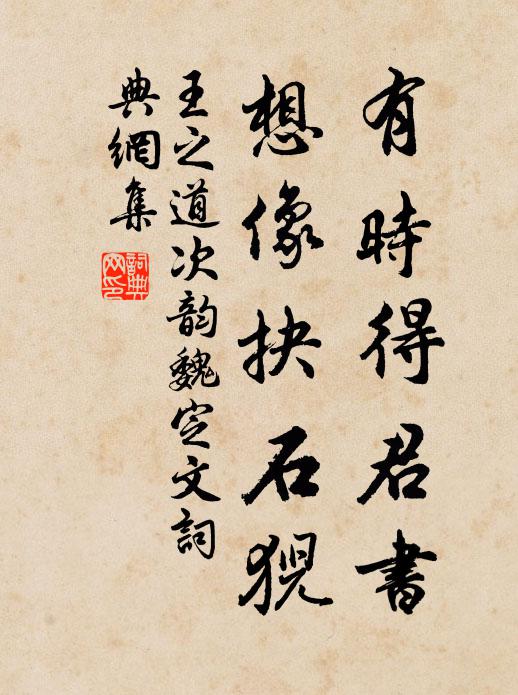 有時得君書
想像抉石猊
王之道次韵魏定文詞
典網集
詞典
网印